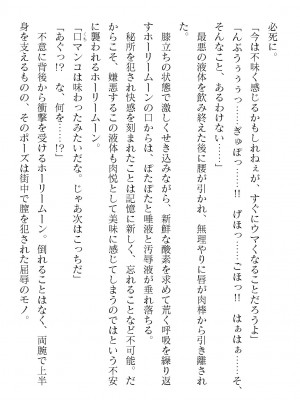 必死に。
「今は不味く感じるかもしれねぇが、すぐにウマくなることだろうよ」
「んぶうぅぅぅっ……ぎゅぽっ……!! げほっ!! ごほっ!! はぁはぁ……そ、
そんなこと、あるわけない……」
最悪の液体を飲み終えた後に腰が引かれ、無理やりに唇が肉棒から引き離され
る。
膝立ちの状態で激しくせき込みながら、新鮮な酸素を求めて荒く呼吸を繰り返
すホーリームーンの口からは、ぼたぼたと唾液と汚辱液が垂れ落ちる。
秘所を犯され快感を刻まれたことは記憶に新しく、忘れることなど不可能。だ
からこそ、嫌悪するこの液体も肉悦として美味に感じてしまうのではという不安
に襲われるホーリームーン。
「口マンコは味わったみたいだな。じゃあ次はこっちだ」
「あぐっ!? な、何を……!?」
不意に背後から衝撃を受けるホーリームーン。倒れることはなく、両腕で上半
身を支えるものの、そのポーズは街中で膣を犯された屈辱のモノ。